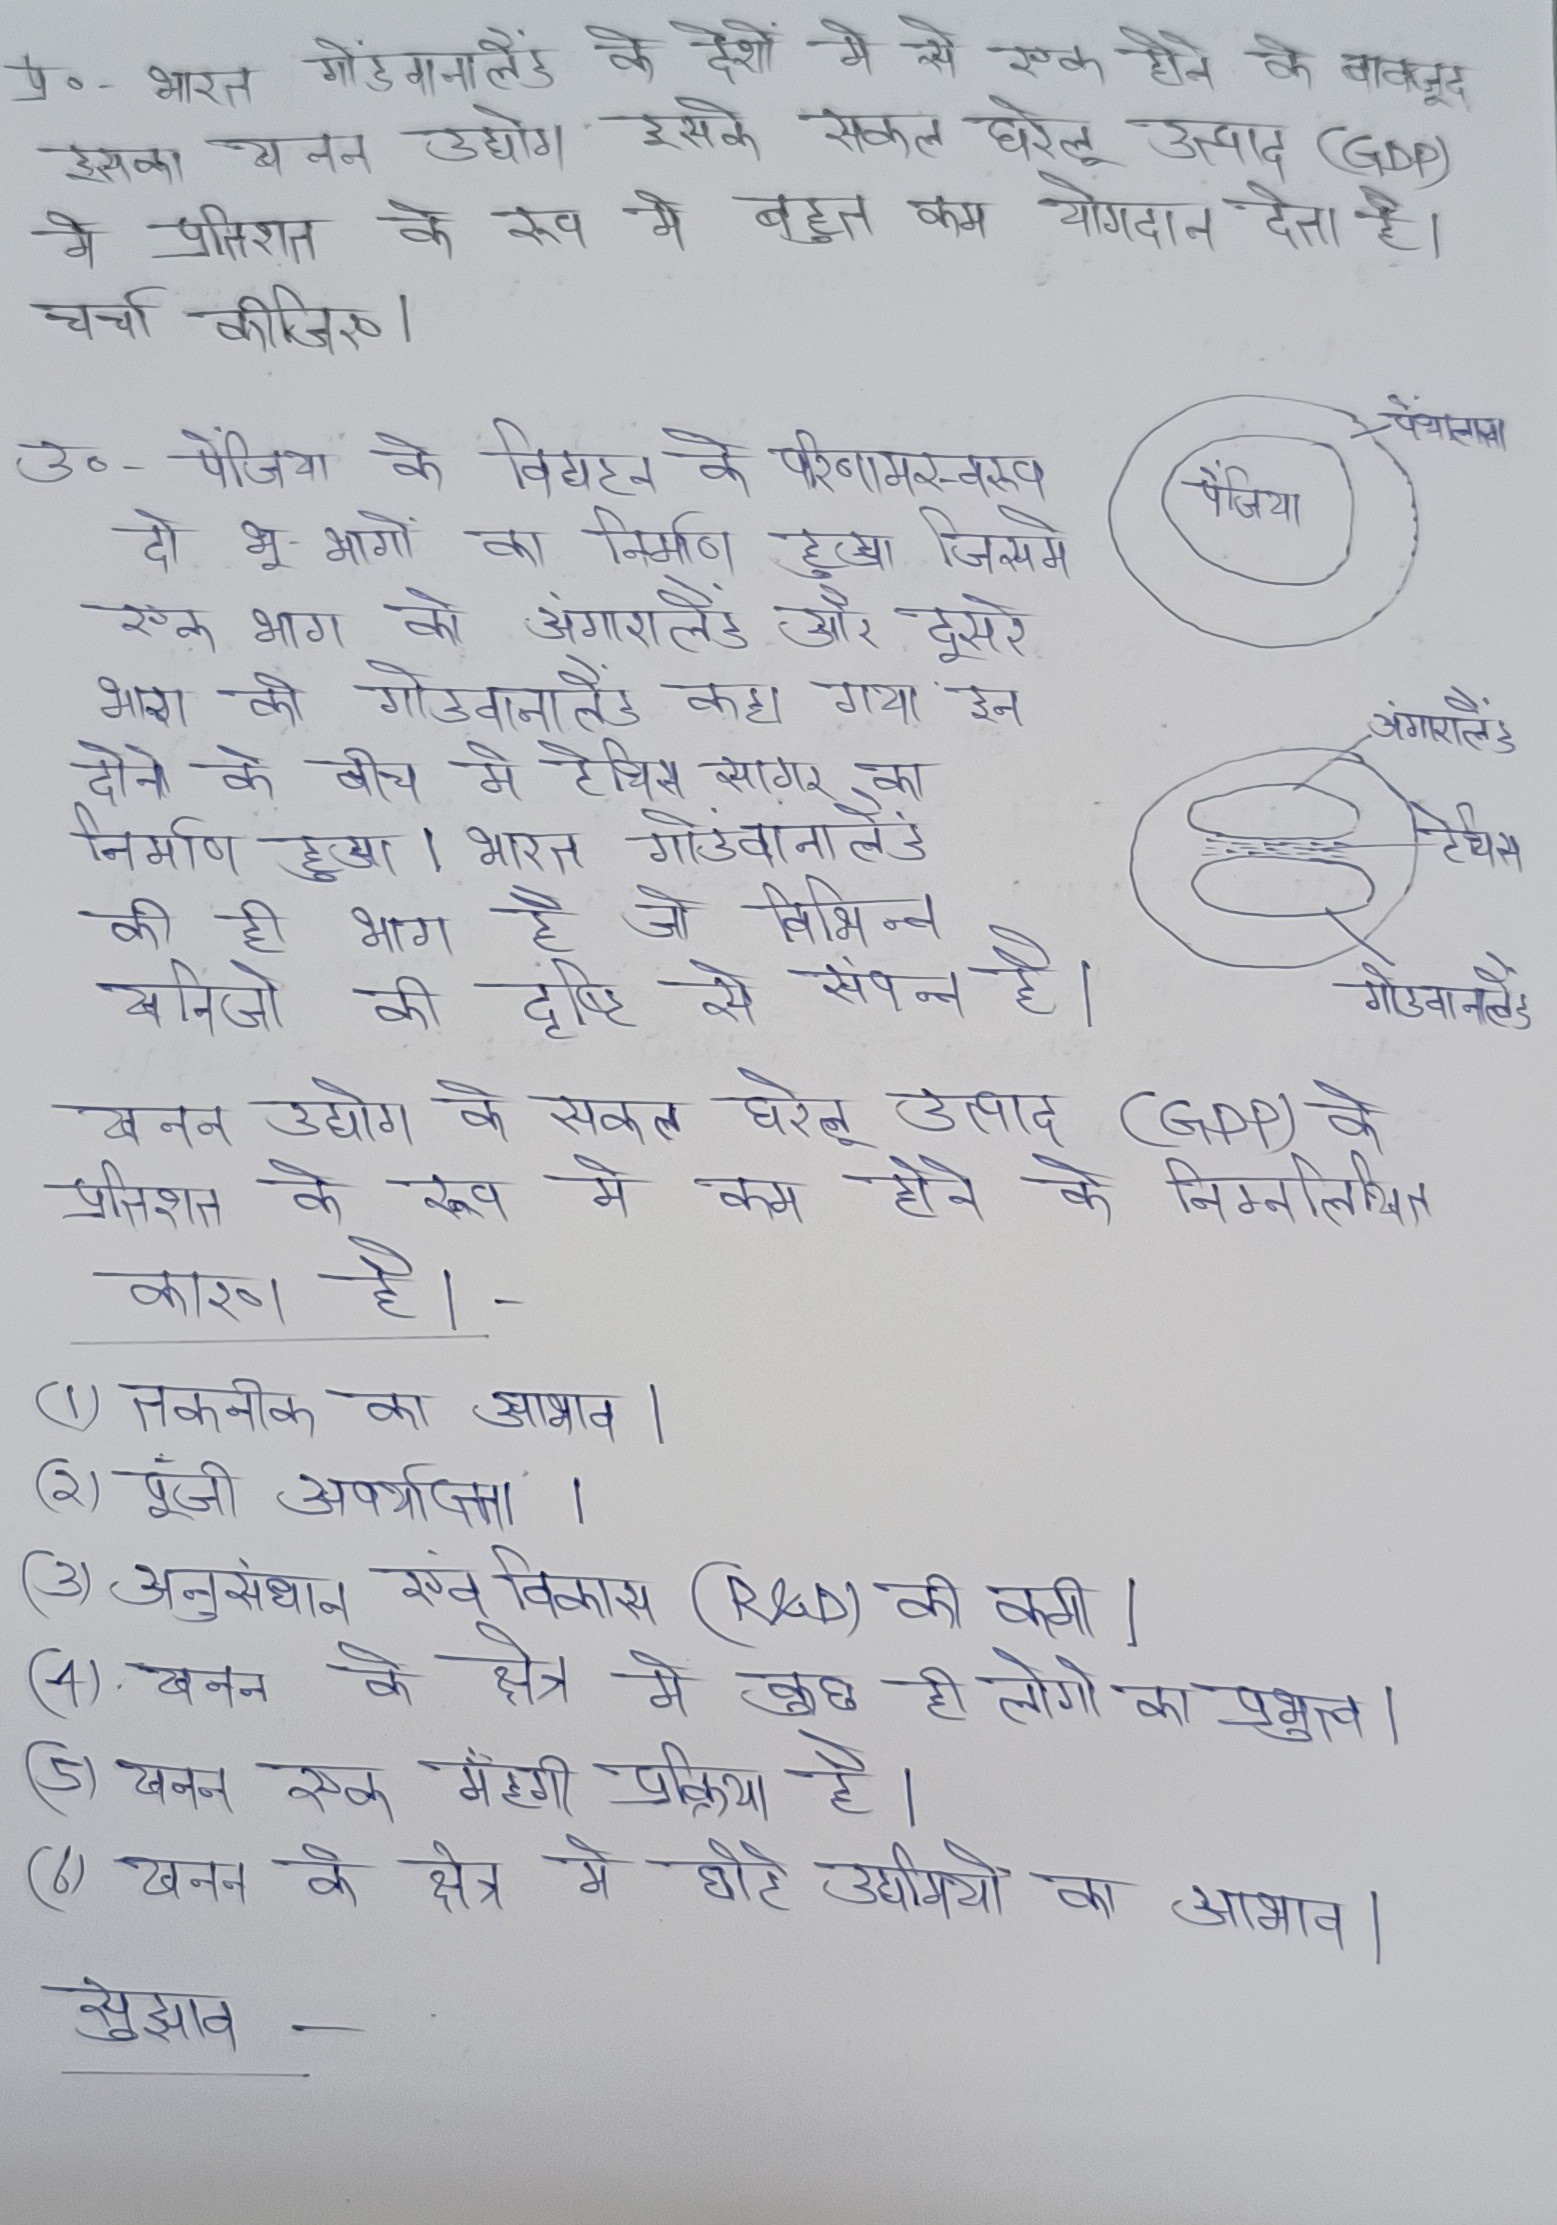 प्र०- भारत गोंडवानालैंड के देशों मे से एक होने के बावजूद
इसका खनन उद्योग इसके सकल घरेलू उत्पाद (GDP)
मे प्रतिशत के रूप मे बहुत कम योगदान देता है।
चर्चा कीजिए।
उ०- पेंजिया के विघटन के परिणामस्वरूप
दो भू-भागों का निर्माण हुआ जिसमे
एक भाग को अंगारालैंड और दूसरे
भाग को गोडवानालैंड कहा गया इन
दोनो के बीच मे टेथिस सागर का
निर्माण हुआ। भारत गोडंवानालैडं
की ही भाग है जो विभिन्न
खनिजो की दृष्टि से संपन्न है।
पेंथालासा
पैंजिया
अंगारालैंड
टेथिस
गोडवानलैंड
खनन उद्योग के सकल घरेलू उत्पाद (GDP) के
प्रतिशत के रूप मे कम होने के निम्नलिखित
कारण है। -
(1) तकनीक का आभाव।
(२) पूँजी अपर्याप्तता।
(3) अनुसंधान एंव विकास (R&D) की कमी।
(4). खनन के क्षेत्र मे कुछ ही लोगो का प्रभुत्व।
(5) खनन एक मँहगी प्रक्रिया है।
(6) खनन के क्षेत्र मे छोटे उद्यमियों का आभाव।
सुझाव —